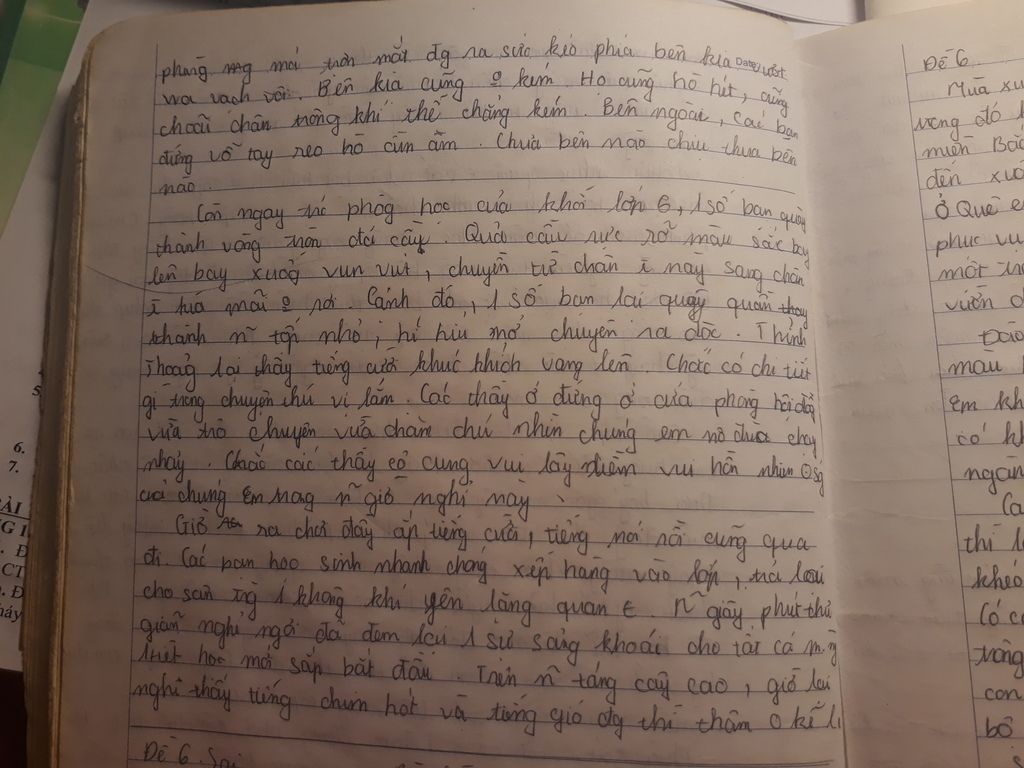 phùng mg mới tròn mắt đg ra sức kéo phía bên kia Date vượt
wa vạch vôi. Bên kia cũng o kém. Họ cũng hò hét, cũng
choãi chân trông khí thế chẳng kém. Bên ngoài, các bạn
đứng vỗ tay reo hò ầm. Chưa bên nào chịu thua bên
nào.
Còn ngay trc phòg học của khối lớp 6, 1 số bạn quây
thành vòng tròn đá cầu. Quả cầu rực rỡ màu sắc bay
lên bay xuống vun vút, chuyền từ chân i này sang chân
i kia mãi o rơi. Cánh đó, 1 số bạn lại quây quần
thành n~ tốp nhỏ, hí hiu mở chuyện ra đọc. Thỉnh
Thoảg lại thấy tiếng cười khúc khích vang lên. Chắc có chi tiết
gì trong chuyện thú vị lắm. Các thầy đứng ở cửa phòng hội đồg
vừa trò chuyện vừa chăm chú nhìn chúng em nô đùa chạy
nhảy. Chắc các thầy cô cũng vui lây niềm vui hồn nhiên
của chúng em trog n~ giờ nghỉ này.
Giờ ra chơi đầy ắp tiếng cười, tiếng nói rồi cũng qua
đi. Các bạn học sinh nhanh chóng xếp hàng vào lớp, trả lại
cho sân 1 không khí yên lặng quen t. N~ giây phút thư
giãn nghỉ ngơi đã đem lại 1 sự sảng khoái cho tất cả m.n
tiết học mới sắp bắt đầu. Trên n~ tầng cây cao, giờ lại
nghỉ thấy tiếng chim hót và tiếng gió đg thì thầm
Đề 6.
Đề 6.
Mùa xu
trong đó
miền Bắc
đến xuâ
Ở Quê e
phục vụ
một
vườn
Đào
màu
em kh
có
ngàn
Ca
thì l
khéo
Có c
trông
con
bố
6.
7.